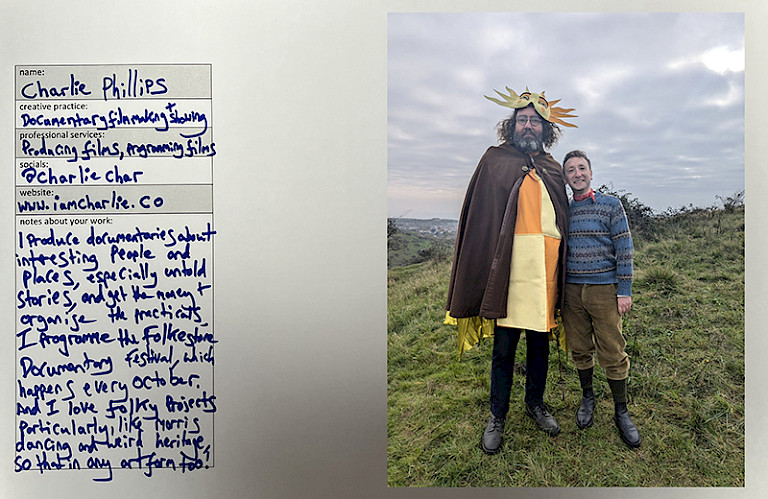 name:
Charlie Phillips
creative practice:
Documentary filmmaking + showing
professional services:
Producing films, programming films
socials:
@charlie char
website:
www.iamcharlie.co
notes about your work:
I produce documentaries about
interesting people and
places, especially untold
stories, and get the money +
organise the practicals.
I programme the Folkestone
Documentary Festival, which
happens every october.
And I love folky projects
particularly, like Morris
dancing and weird heritage,
so that in any art form too!